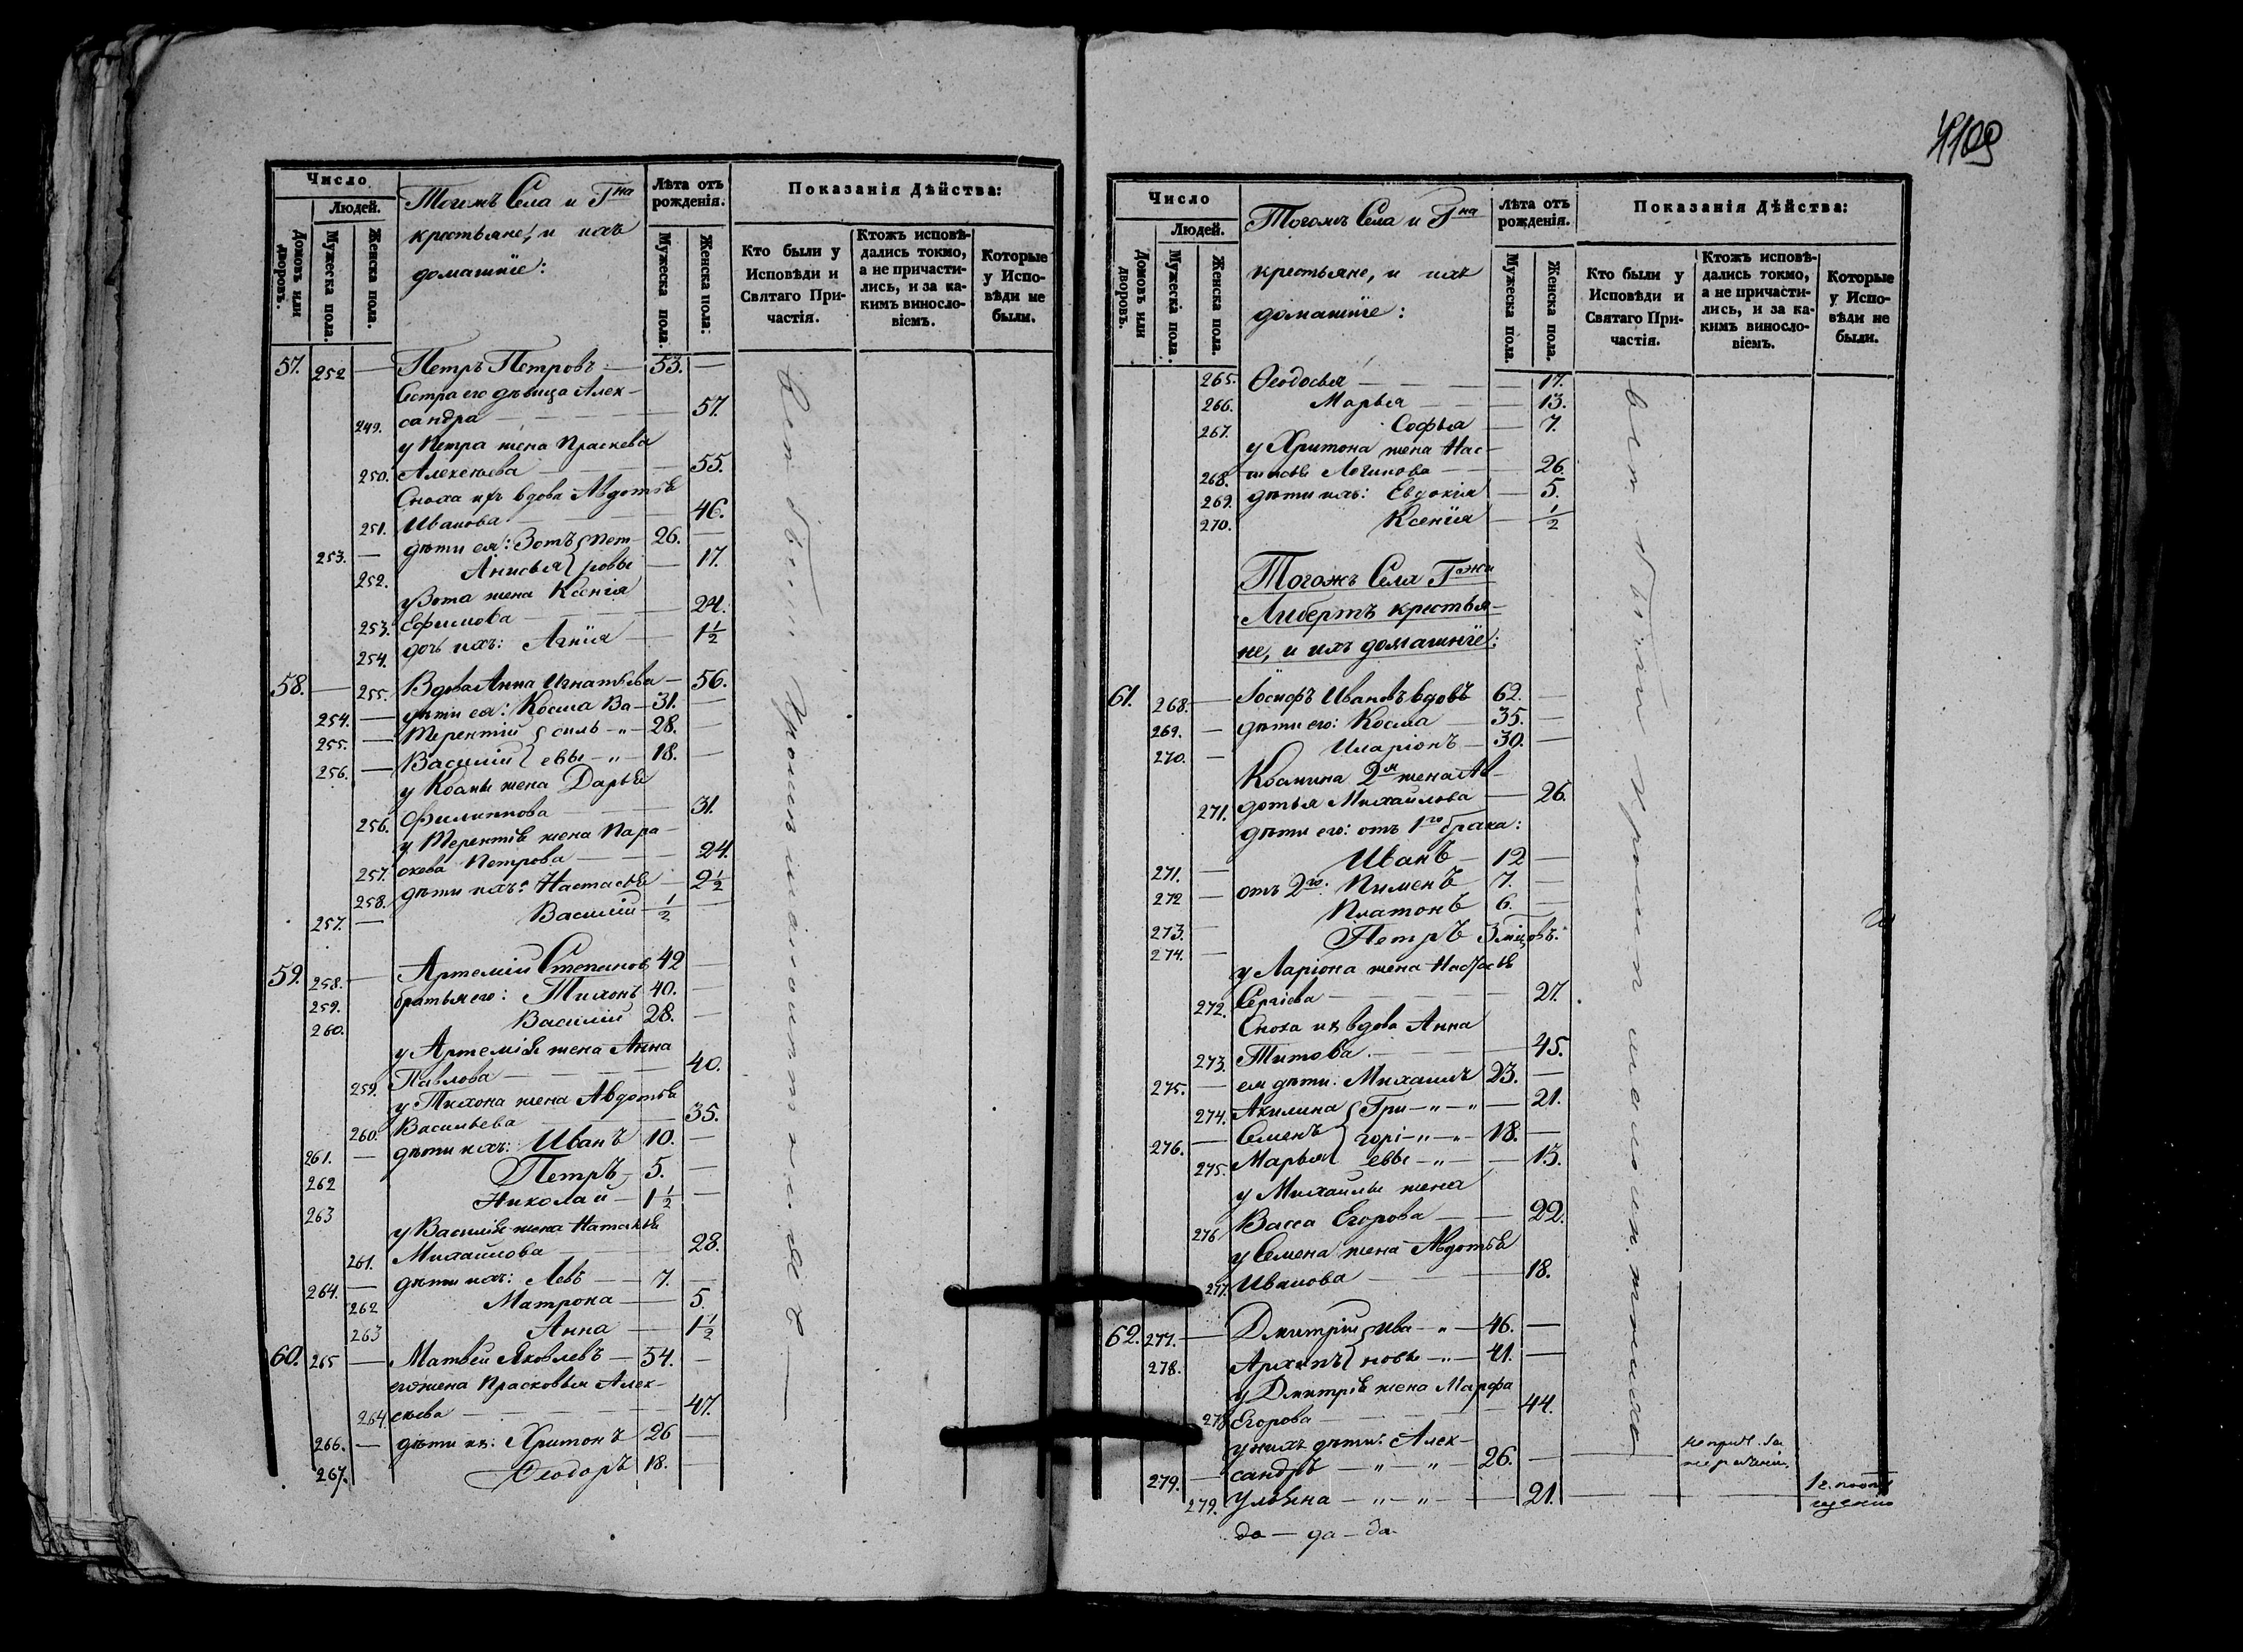 Число
Людей.
Домовъ или дворовъ.
Мужеска пола.
Женска пола.
Тогожъ Села и Гна
крестьяне, и ихъ
домашніе:
Лѣта отъ рожденія.
Мужеска пола.
Женска пола.
Показанія Дѣйства:
Кто были у Исповѣди и Святаго Причастія.
Ктожъ исповѣдались токмо, а не причастились, и за какимъ винословіемъ.
Которые у Исповѣди не были.
57. 252 — Петръ Петровъ — 53. —
Сестра его дѣвица Алек-
249. сандра — 57.
у Петра жена Праскева
250. Алексеева — 55.
Сноха ихъ вдова Авдотья
251. Иванова — 46.
253. — дѣти ея: Зотъ Пет- 26. —
252. Анисья ровы — 17.
у Зота жена Ксенія
253. Ефимова — 24.
254. дочь ихъ: Агнія — 1½
58. — 255. Вдова Анна Игнатьева — 56.
254. — дѣти ея: Косма Ва- 31. —
255. — Терентій силь- „ — 28. —
256. — Василій евы - „ — 18. —
у Космы жена Дарья
256. Филиппова — 31.
у Терентія жена Пара-
257. скева Петрова — 24.
258. дѣти ихъ: Настасья — 2½
257. — Василій — ½ —
59. 258. — Артемій Степановъ 42 —
259. братья его: Тихонъ 40. —
260. Василій 28. —
у Артемія жена Анна
259. Павлова — 40.
у Тихона жена Авдотья
260. Васильева — 35.
261. — дѣти ихъ: Иванъ 10. —
262 Петръ 5. —
263 Николай — 1½ —
у Василія жена Наталья
261. Михайлова — 28.
264. — дѣти ихъ: Левъ — 7. —
262 Матрона — 5.
263 Анна — 1½
60. 265 — Матвей Яковлевъ — 54. —
его жена Прасковья Алек-
264. сеева — 47.
266. — дѣти их: Хритонъ 26 —
267. Ѳеодоръ 18. —
Число
Людей.
Домовъ или дворовъ.
Мужеска пола.
Женска пола.
Тогожъ Села и Гна
крестьяне, и ихъ
домашніе:
Лѣта отъ рожденія.
Мужеска пола.
Женска пола.
Показанія Дѣйства:
Кто были у Исповѣди и Святаго Причастія.
Ктожъ исповѣдались токмо, а не причастились, и за какимъ винословіемъ.
Которые у Исповѣди не были.
265. Ѳеодосья — 17.
266. Марья — 13.
267. Софья — 7.
у Хритона жена Нас-
268. тасья Логинова — 26.
269. дѣти ихъ: Евдокія — 5.
270. Ксенія — ½
Тогожъ Села Гжи
Либертъ крестья-
не, и ихъ домашніе:
61. 268. — Іосифъ Ивановъ вдовъ 62. —
269. — дѣти его: Косма — 35. —
270. — Иларіонъ — 30. —
Космина 2я жена Ав-
271. дотья Михайлова — 26.
дѣти его: отъ 1го брака:
271. — Иванъ — 12 —
272 — отъ 2го: Пименъ — 7. —
273. — Платонъ 6. —
274. — Петръ 3 мѣсяцовъ.
у Ларіона жена Настасья
272. Сергіева — 27.
Сноха их вдова Анна
273. Титова. — 45.
275. — ея дѣти: Михаилъ 23. —
274. Акилина Гри- „ - „ — 21.
276. — Семенъ горі- „ - „ 18. —
275. Марья евы - „ — 13.
у Михаилы жена
276 Васса Егорова — 22.
у Семена жена Авдотья
277. Иванова — 18.
62. 277. — Дмитрій Ива- „ — 46. —
278. Архипъ новы - „ — 41. —
у Дмитрія жена Марфа
278 Егорова — 44.
у нихъ дѣти: Алек-
279. — сандръ — „ — „ — 26. —
279. Ульяна — „ — „ — 21.
да — да — да